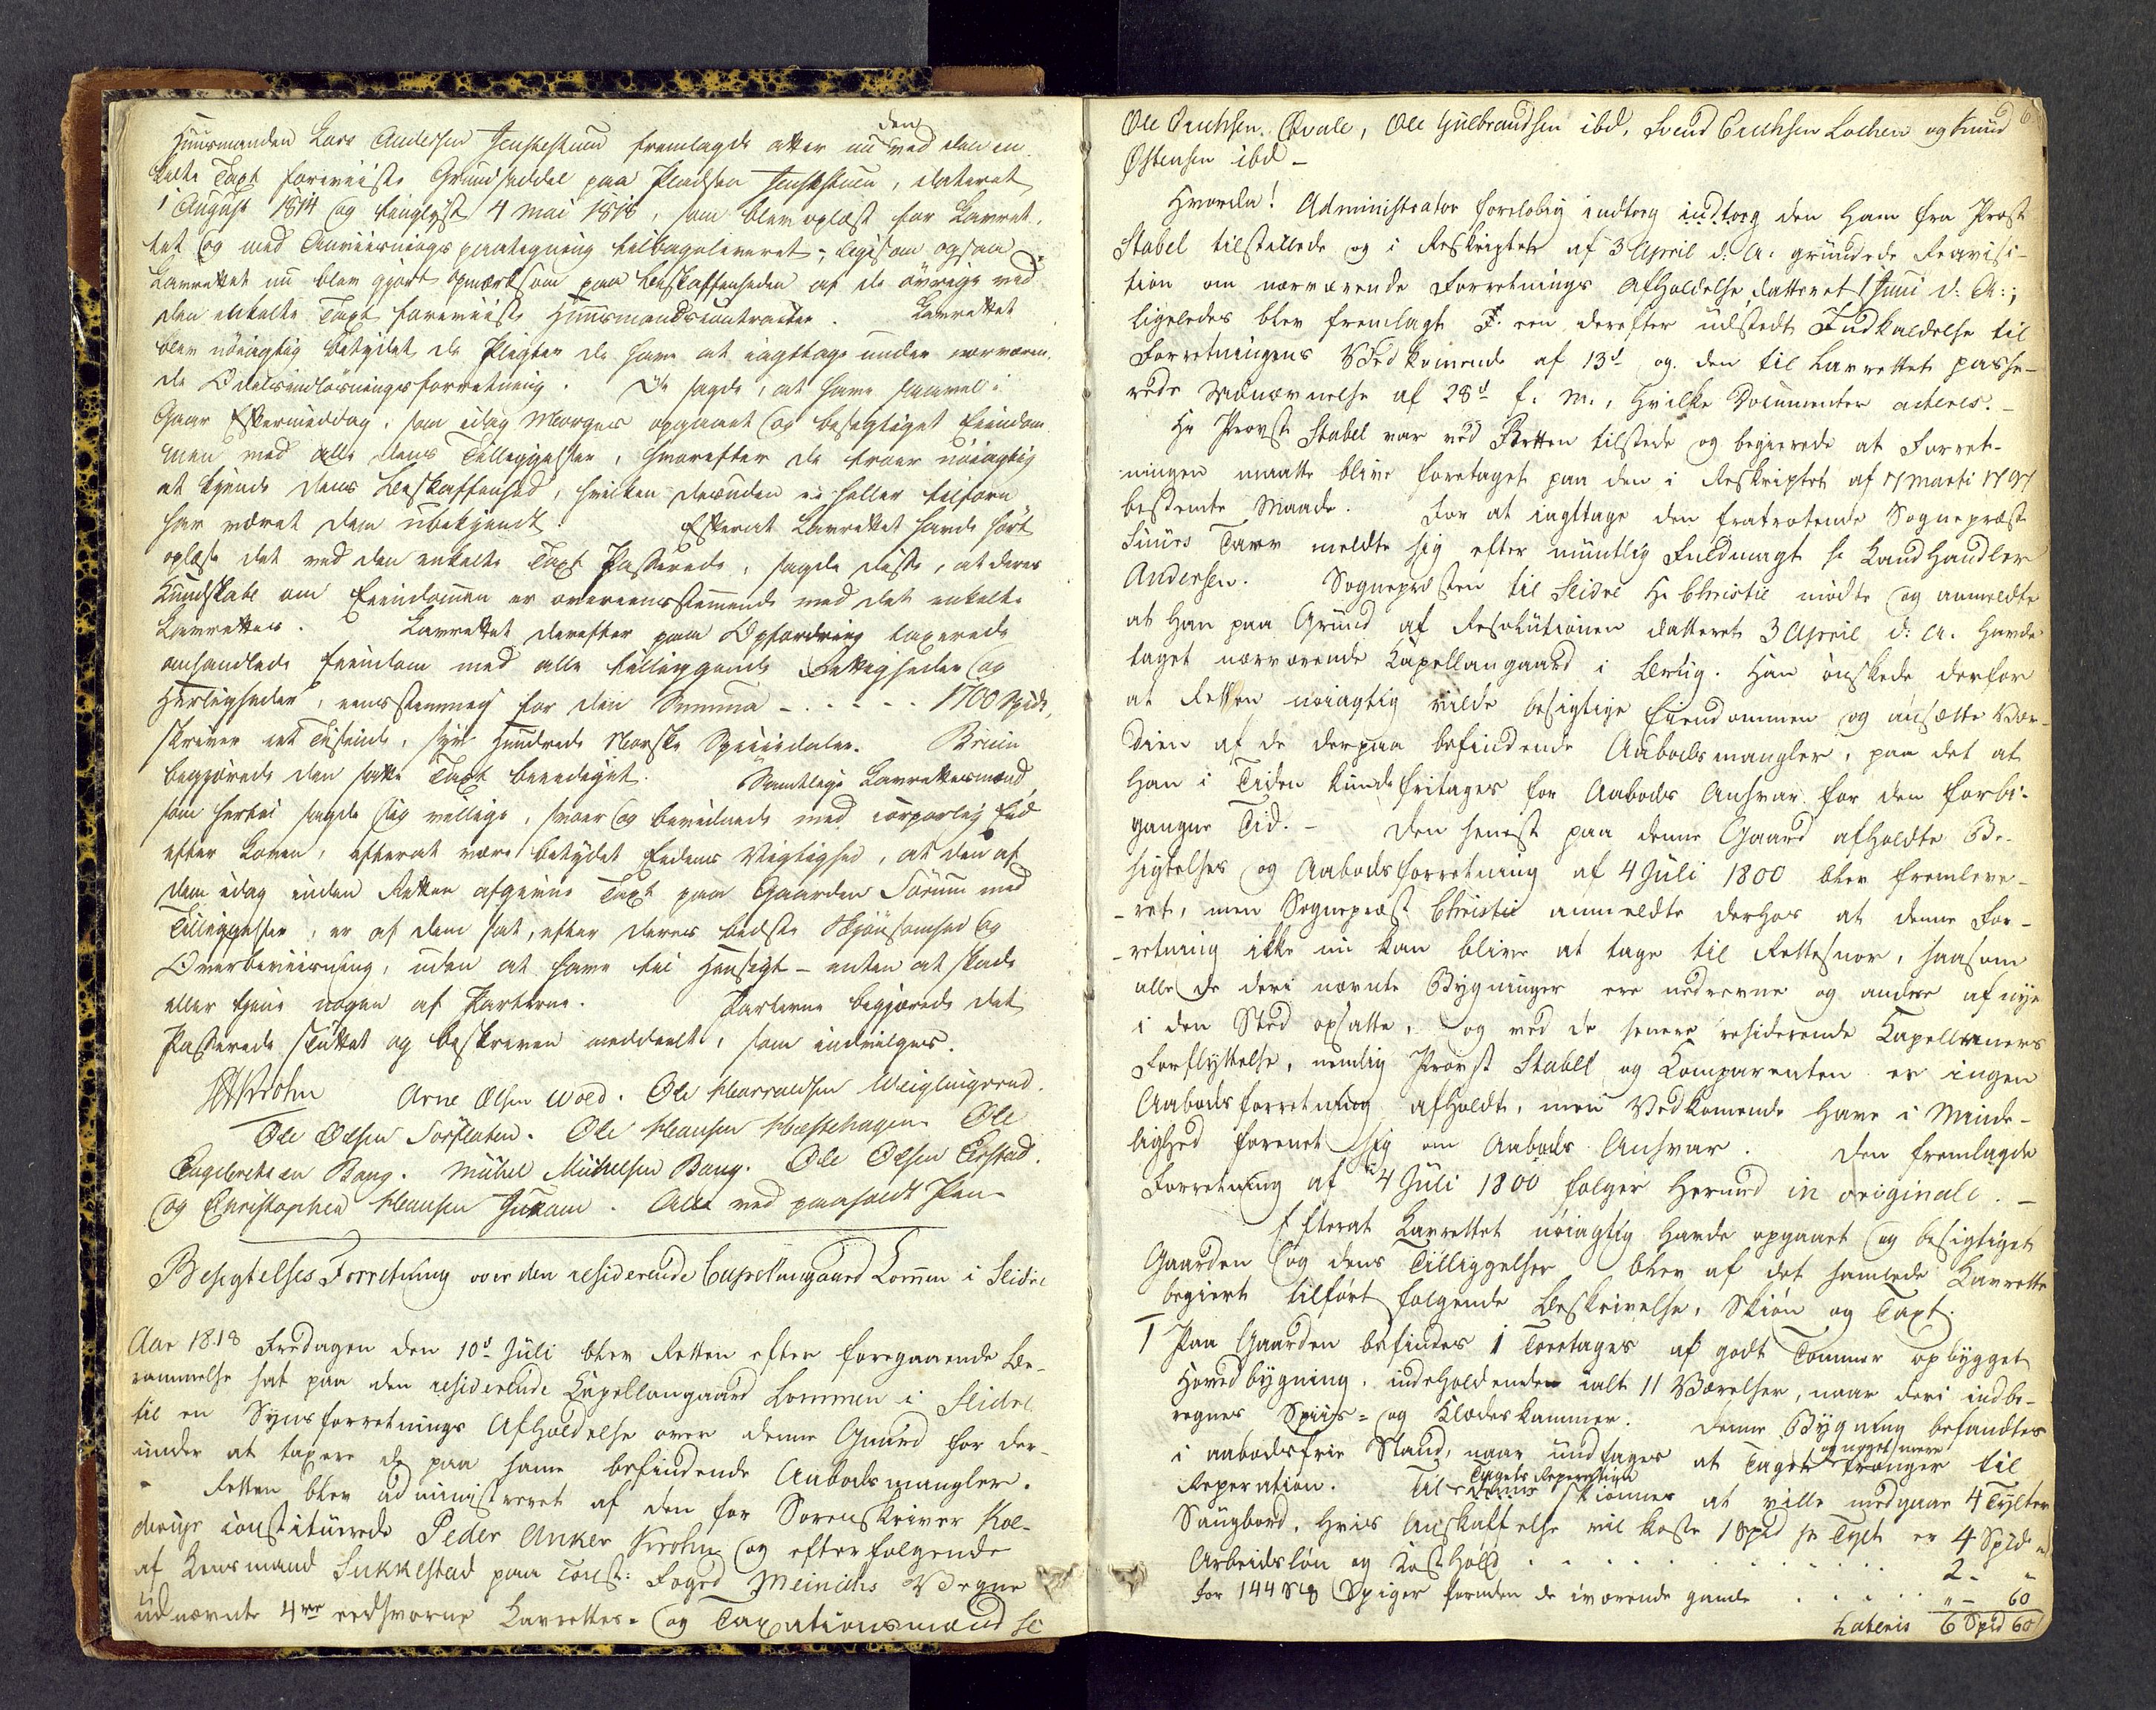 Huusmanden Lars Andersen Jenshestuen fremlagde atter nu den ved den en
kelte Taxt foreviiste Grundseddel paa Pladsen Jenshestuen, dateret
1 August 1814 og tinglyst 4 Mai 1818, som blev oplæst for Lavret,
tet og med Anviisningspaategning tilbageleveret; ligesom ogsaa
Lavrettet nu blev gjort opmærksom paa Beskaffenheden af de øvrige ved
den enkelte Taxt foreviiste Huusmandscontracter. Lavrettet
blev nöiagtig betydet de Pligter de have at iagttage under nærværen,
de Odelsindlösningsforretning. De sagde, at have saavel i
Gaar Eftermiddag, som idag Morges opgaaet og besigtiget Eiendom
men med alle dens Tilleggelser, hvorefter de troer nöiagtig
at kjende dens Beskaffenhed, hvilken desuden ei heller tilforn
har været dem ubekjendt. Efterat Lavrettet havde hört
oplæse det ved den enkelte Taxt Passerede, sagde disse, at deres
Kundskab om Eiendommen er overeensstemmende med det enkelte
Lavrettes. Lavrettet derefter paa Opfordring taxerede
omhandlede Eiendom med alle tilliggende Rettigheder og
Herligheder, eensstemmig for den Summa - - - - - 1700 Spdr,
skriver et Tusinde, syv Hundrede Norske Speciedaler. Bruin
begjærede den satte Taxt beediget. Samtlige Lavrettesmænd,
som hertil sagde sig villige, svoer og bevidnede med corporlig Eed
efter Loven, efterat være betydet Eedens Vigtighed, at den af
dem idag inden Retten afgivne Taxt paa Gaarden Sörum med
Tilleggelser, er af dem sat, efter deres bedste Skjönsomhed og
Overbeviisning, uden at have til Hensigt - enten at skade
eller tjene nogen af Parterne. Parterne begjærede det
Passerede sluttet og beskreven meddeelt, som indvilges.
PAKrohn Arne Olsen Wold. Ole Haraldsen Weiglingsrud.
Ole Olsen Torpleten. Ole Hansen Hestehagen. Ole
Engebretsen Bang. Mikel Mikelsen Bang. Ole Olsen Erstad.
og Christopher Hansen Juvam. Alle med paaholdt Pen-
Besigtelses Forretning over den residerende Capellangaard Lommen i Slidre
Aar 1818 Fredagen den 10d Juli blev Retten efter foregaaende Be-
rammelse sat paa den residerende Kapellangaard Lommen i Slidre
til en Synsforretnings Afholdelse over denne Gaard for der-
under at taxere de paa same befindende Aabods mangler.
- Retten blev administreret af den for Sorenskriver Kol-
derup constituerede Peder Anker Krohn og efterfølgende
af Lensmand Sukkestad paa const: Foged Meinichs Vegne
udnævnte 4re eedsvorne Lavrettes- og Taxationsmænd sc
Ole Erichsen Qvale, Ole Gulbrandsen ibd, Svend Erichsen Lochen og Knud
Østensen ibd -
Hvorda! Administrator foreløbig indtog indtog den Ham fra Provst
Stabel tilstillede og i Reskriptet af 3 April d: A: grundede Reqvisi-
tion om nærværende Forretnings Afholdelse, datteret 1 Juni d: A:;
ligeledes blev fremlagt en derefter udstedt Indkaldelse til
Forretningens Vedkomende af 13d og den til Lavrettet passe-
rede Udnævnelse af 28d f: M:, hvilke Documenter acteres. -
Hr Provst Stabel var ved Retten tilstede og begierede at Forret-
ningen maatte blive foretaget paa den i Reskriptet af 17 Marti 1797
bestemte Maade. For at iagttage den fratrædende Sognepræst
Tarv meldte sig efter mundtlig Fuldmagt Hr Landhandler
Andersen. Sognepræsten til Slidre Hr Christie mødte og anmeldte
at Han paa Grund af Resolutionen datteret 3 April d: A. havde
taget nærværende Kapellangaard i Brug. Han ønskede derfor
at Retten nøiagtig vilde besigtige Eiendommen og ansætte Vær-
dien af de derpaa befindende Aabodsmangler, paa det at
Han i Tiden kunde fritages for Aabods Ansvar for den forbi-
gangne Tid. - Den seneste paa denne Gaard afholdte Be-
sigtelses og Aabodsforretning af 4 Juli 1800 blev fremleve-
-ret, men Sognepræst Christie anmeldte derhos at denne For-
-retning ikke nu kan blive at tage til Rettesnor, saasom
alle de deri nævnte Bygninger ere nedrevne og andre af nye
i den Sted opsatte, og ved de senere residerende Kapellaners
Forflyttelse, nemlig Provst Stabel og Komparenten er ingen
Aabodsforretning afholdt, men Vedkomende have i Minde-
lighed forenet sig om Aabods Ansvar. Den fremlagde
Forretning af 4 Juli 1800 følger herved in originali. -
Efterat Lavrettet nøiagtig havde opgaaet og besigtiget
Gaarden og dens Tilliggelser blev af det samlede Lavrette
begiert tilført følgende Beskrivelse, Skiøn og Taxt.
1 Paa Gaarden befindes 1 Toetages af godt Tømmer opbygget
Hovedbygning, indeholdende ialt 11 Værelser, naar deri indbe-
regnes Spiis- og Klædeskammer. Denne Bygning befandtes
i aabodsfrie Stand, naar undtages at Taget og noget mere trænger til
Reperation. Til Tagets Reperation skiønnes at ville medgaae 4 Tylter
Saugbord, hvis Anskaffelse vil koste 1 Spd pr Tylt er 4 Spdr "
Arbeidsløn og Kosthold . . . . . . 2 - "
for 144 St Spiger foruden de iværende gamle . . . . " - 60
Lateris 6 Spd 60